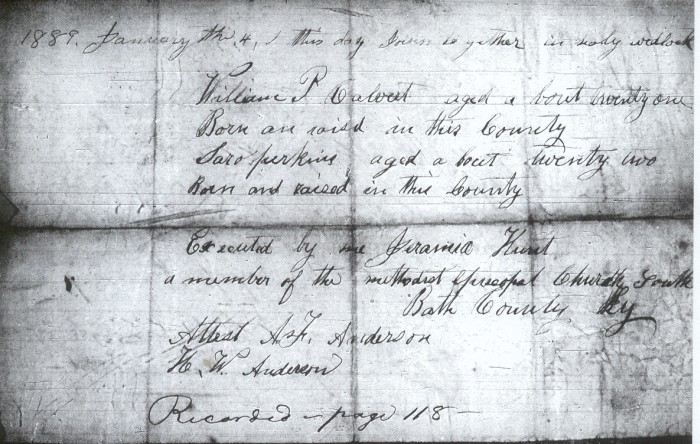 1889. January the 4, I this day Joien to gether in holy wedlock
William P Calvert aged a bout twenty one
Born an raisd in this County
Saro perkins aged a bout twenty two
Born and raised in this County
Executed by me Jiramia Hunt
a member of the methodist Episcopal Church South
Bath County Ky
Attest A. F. Anderson
H. W. Anderson
Recorded - page 118 -